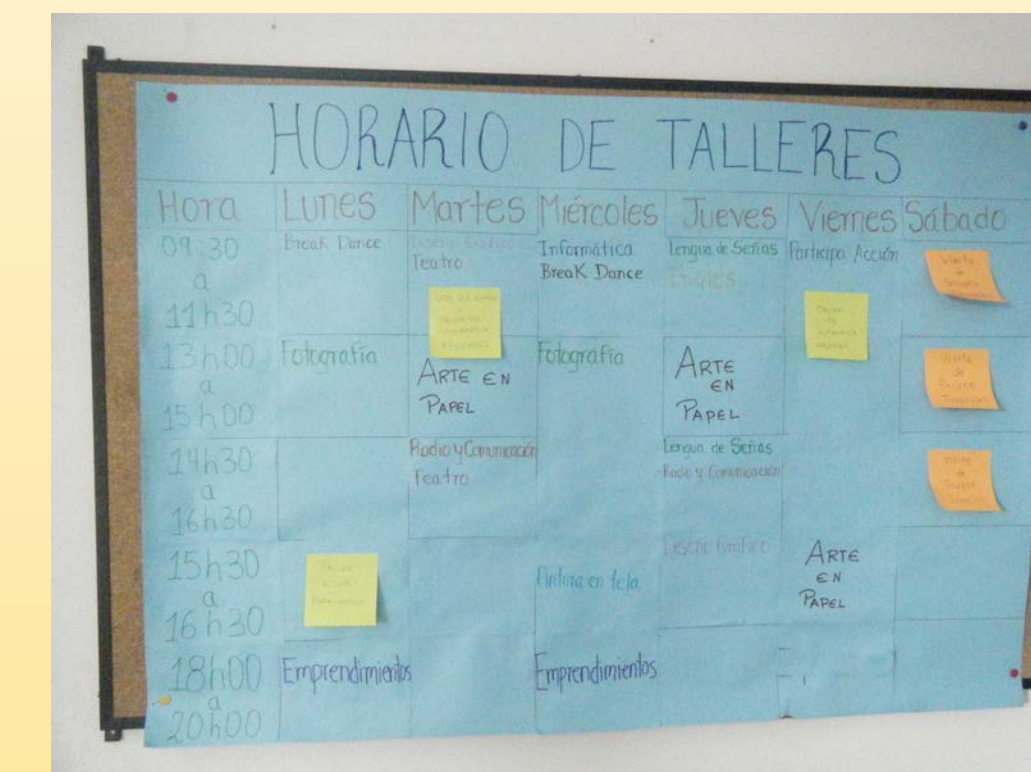 HORARIO DE TALLERES
Hora Lunes Martes Miércoles Jueves Viernes Sábado
09:30 a 11h30
Break Dance
Diseño Gráfico
Teatro
Informática
Break Dance
Lengua de Señas
Inglés
Participa Acción
Visita
de
13h00 a 15h00
Fotografía
ARTE EN
PAPEL
Fotografía
ARTE
EN
PAPEL
Visita
de
14h30 a 16h30
Radio y Comunicación
Teatro
Lengua de Señas
Radio y Comunicación
Visita
de
15h30 a 16h30
Pintura en tela
Diseño Gráfico
ARTE
EN
PAPEL
18h00 a 20h00
Emprendimientos
Emprendimientos